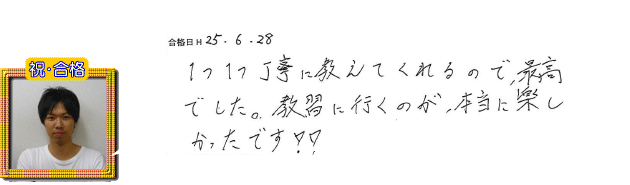 合格日 H 25・6・28
祝・合格
1つ1つ丁寧に教えてくれるので、最高
でした。教習に行くのが、本当に楽し
かったです!!